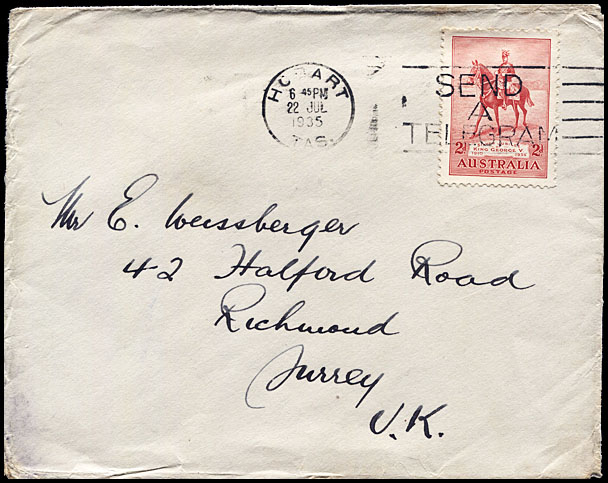 HOBART
6 45 PM
22 JUL
1935
TAS
SEND
A
TELEGRAM
2D KING GEORGE V 2D
1910 1935
AUSTRALIA
POSTAGE
Mr E. Weissberger
42 Halford Road
Richmond
Surrey
U.K.